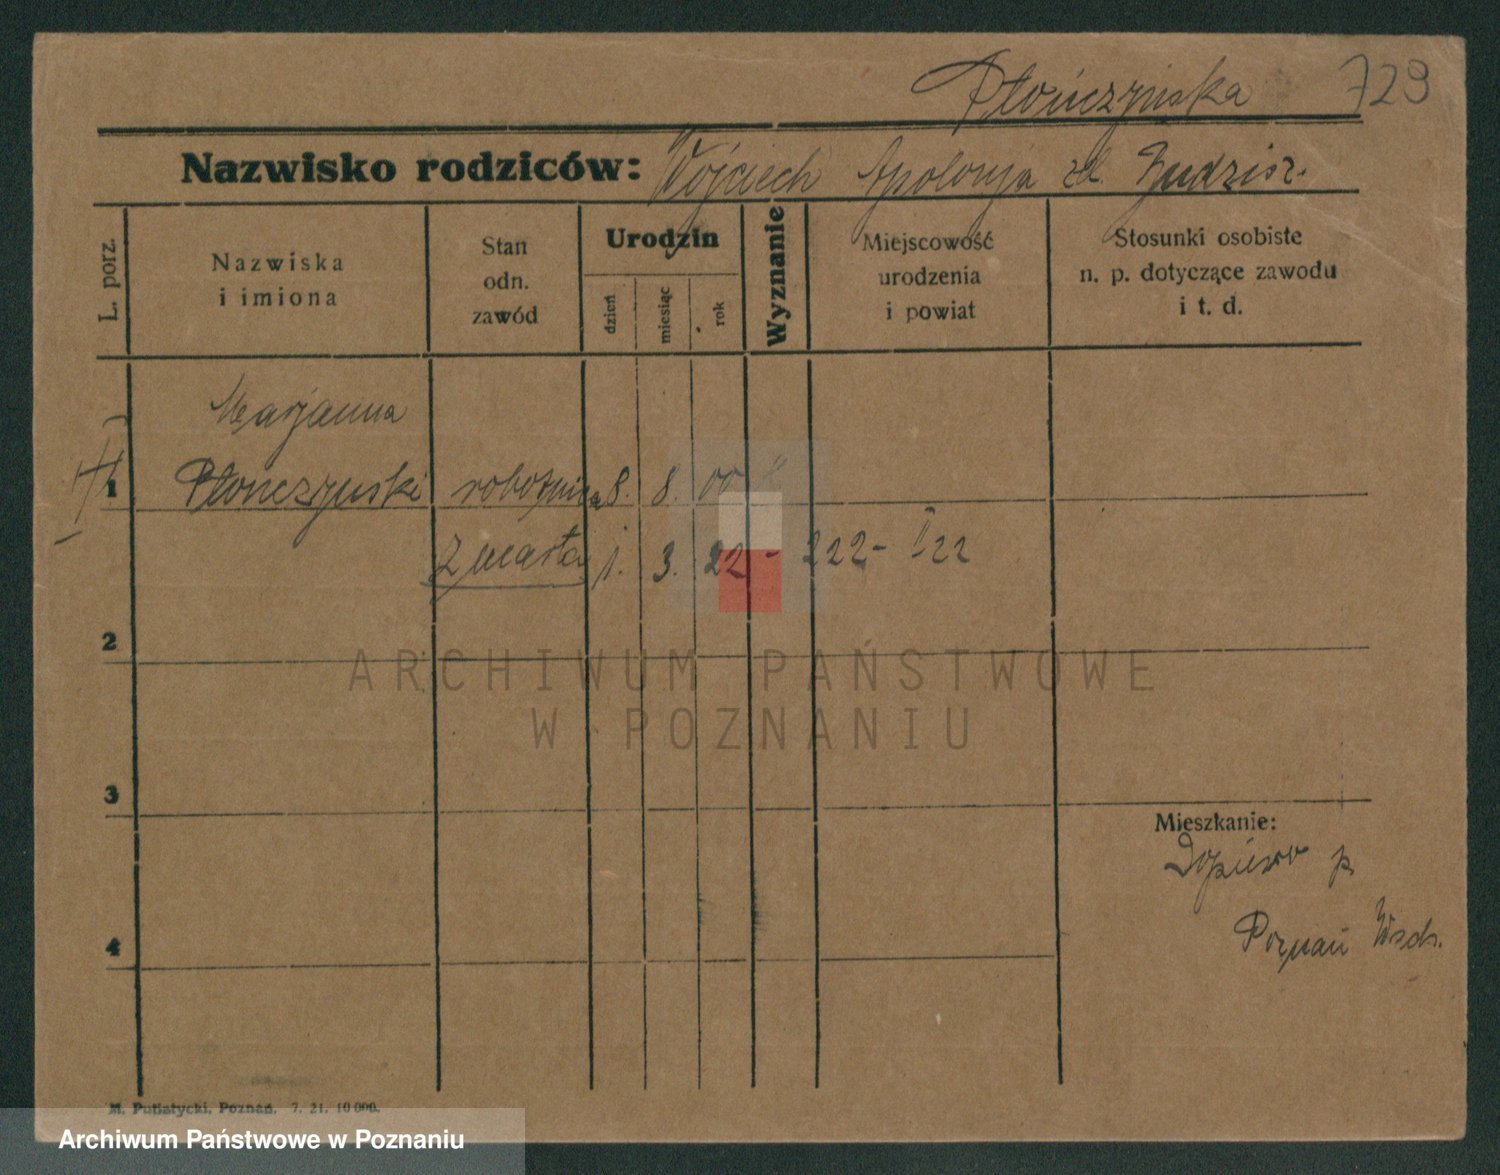 Płończyńska 729
Nazwisko rodziców: Wojciech Apolonja zd. Budzisz.
L. porz.
Nazwiska i imiona
Stan odn. zawód
Urodzin
dzień
miesiąc
rok
Wyznanie
Miejscowość urodzenia i powiat
Stosunki osobiste n. p. dotyczące zawodu i t. d.
Marjanna
1 Płonczynski robotnica 8. 8. 00
Zmarła 1. 3. 22 - 222 - II 22
2
ARCHIWUM PAŃSTWOWE
W POZNANIU
3
Mieszkanie:
Dopiewo p.
4
Poznań Wsch.
M. Putiatycki, Poznań. 7. 21. 10 000.
Archiwum Państwowe w Poznaniu